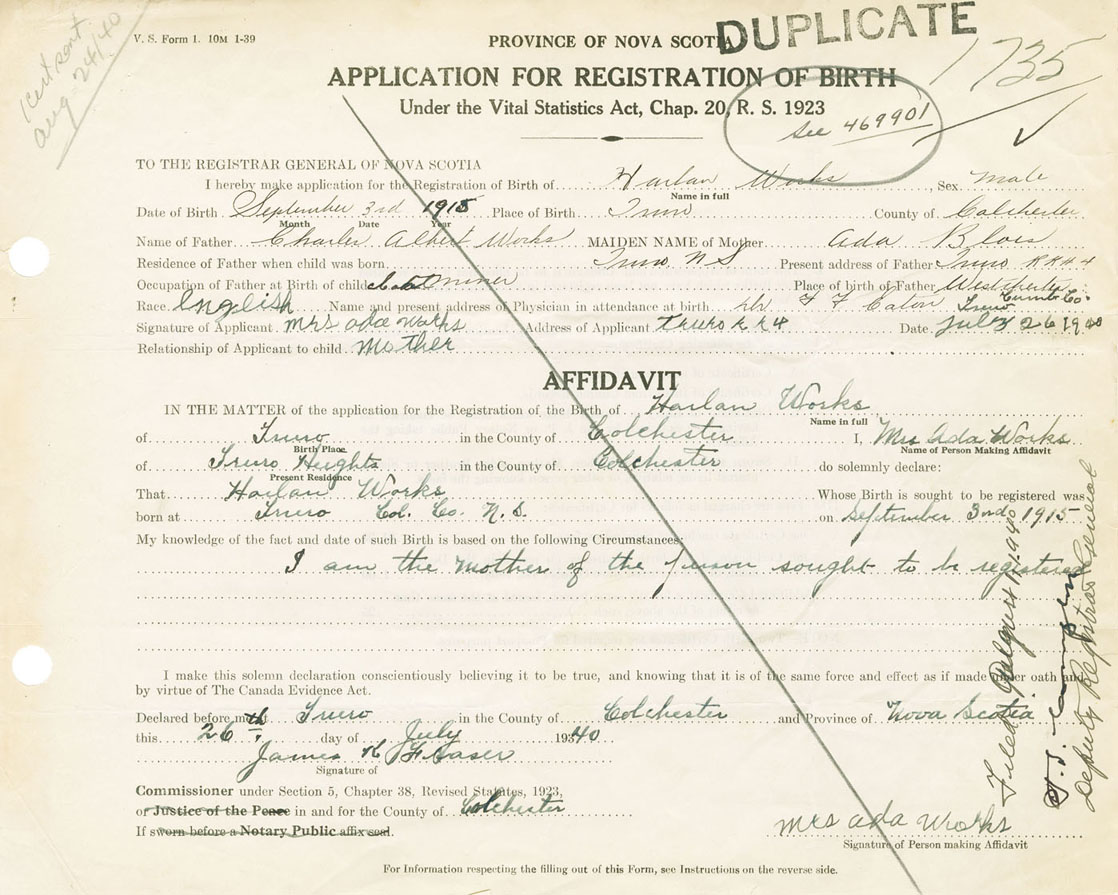 Cert sent
Aug 24/40
V. S. Form 1. 10M 1-39
PROVINCE OF NOVA SCOTIA
DUPLICATE
1735
APPLICATION FOR REGISTRATION OF BIRTH
Under the Vital Statistics Act, Chap. 20, R. S. 1923
See 469901
TO THE REGISTRAR GENERAL OF NOVA SCOTIA
I hereby make application for the Registration of Birth of Harlan Works, Sex male
Name in full
Date of Birth September 3rd 1915 Place of Birth Truro County of Colchester
Month Date Year
Name of Father Charles Albert Works MAIDEN NAME of Mother Ada Blois
Residence of Father when child was born Truro N S Present address of Father Truro RR 4
Occupation of Father at Birth of child miner Place of birth of Father Westchester
Cumb Co.
Race English Name and present address of Physician in attendance at birth Dr F F Eaton Truro
Signature of Applicant Mrs Ada Works Address of Applicant Truro R R 4 Date July 26 1940
Relationship of Applicant to child Mother
AFFIDAVIT
IN THE MATTER of the application for the Registration of the Birth of Harlan Works
Name in full
of Truro in the County of Colchester I, Mrs Ada Works
Birth Place Name of Person Making Affidavit
of Truro Heights in the County of Colchester do solemnly declare:
Present Residence
That Harlan Works Whose Birth is sought to be registered was
born at Truro Col. Co. N. S. on September 3rd 1915
My knowledge of the fact and date of such Birth is based on the following Circumstances:
I am the Mother of the person sought to be registered
I make this solemn declaration conscientiously believing it to be true, and knowing that it is of the same force and effect as if made under oath and
by virtue of The Canada Evidence Act.
Declared before me at Truro in the County of Colchester and Province of Nova Scotia
this 26th day of July 19340
James H Fraser
Signature of
Commissioner under Section 5, Chapter 38, Revised Statutes, 1923,
or Justice of the Peace in and for the County of Colchester
If sworn before a Notary Public affix seal.
Mrs Ada Works
Signature of Person making Affidavit
For Information respecting the filling out of this Form, see Instructions on the reverse side.
Filed August 1940
Deputy Registrar General